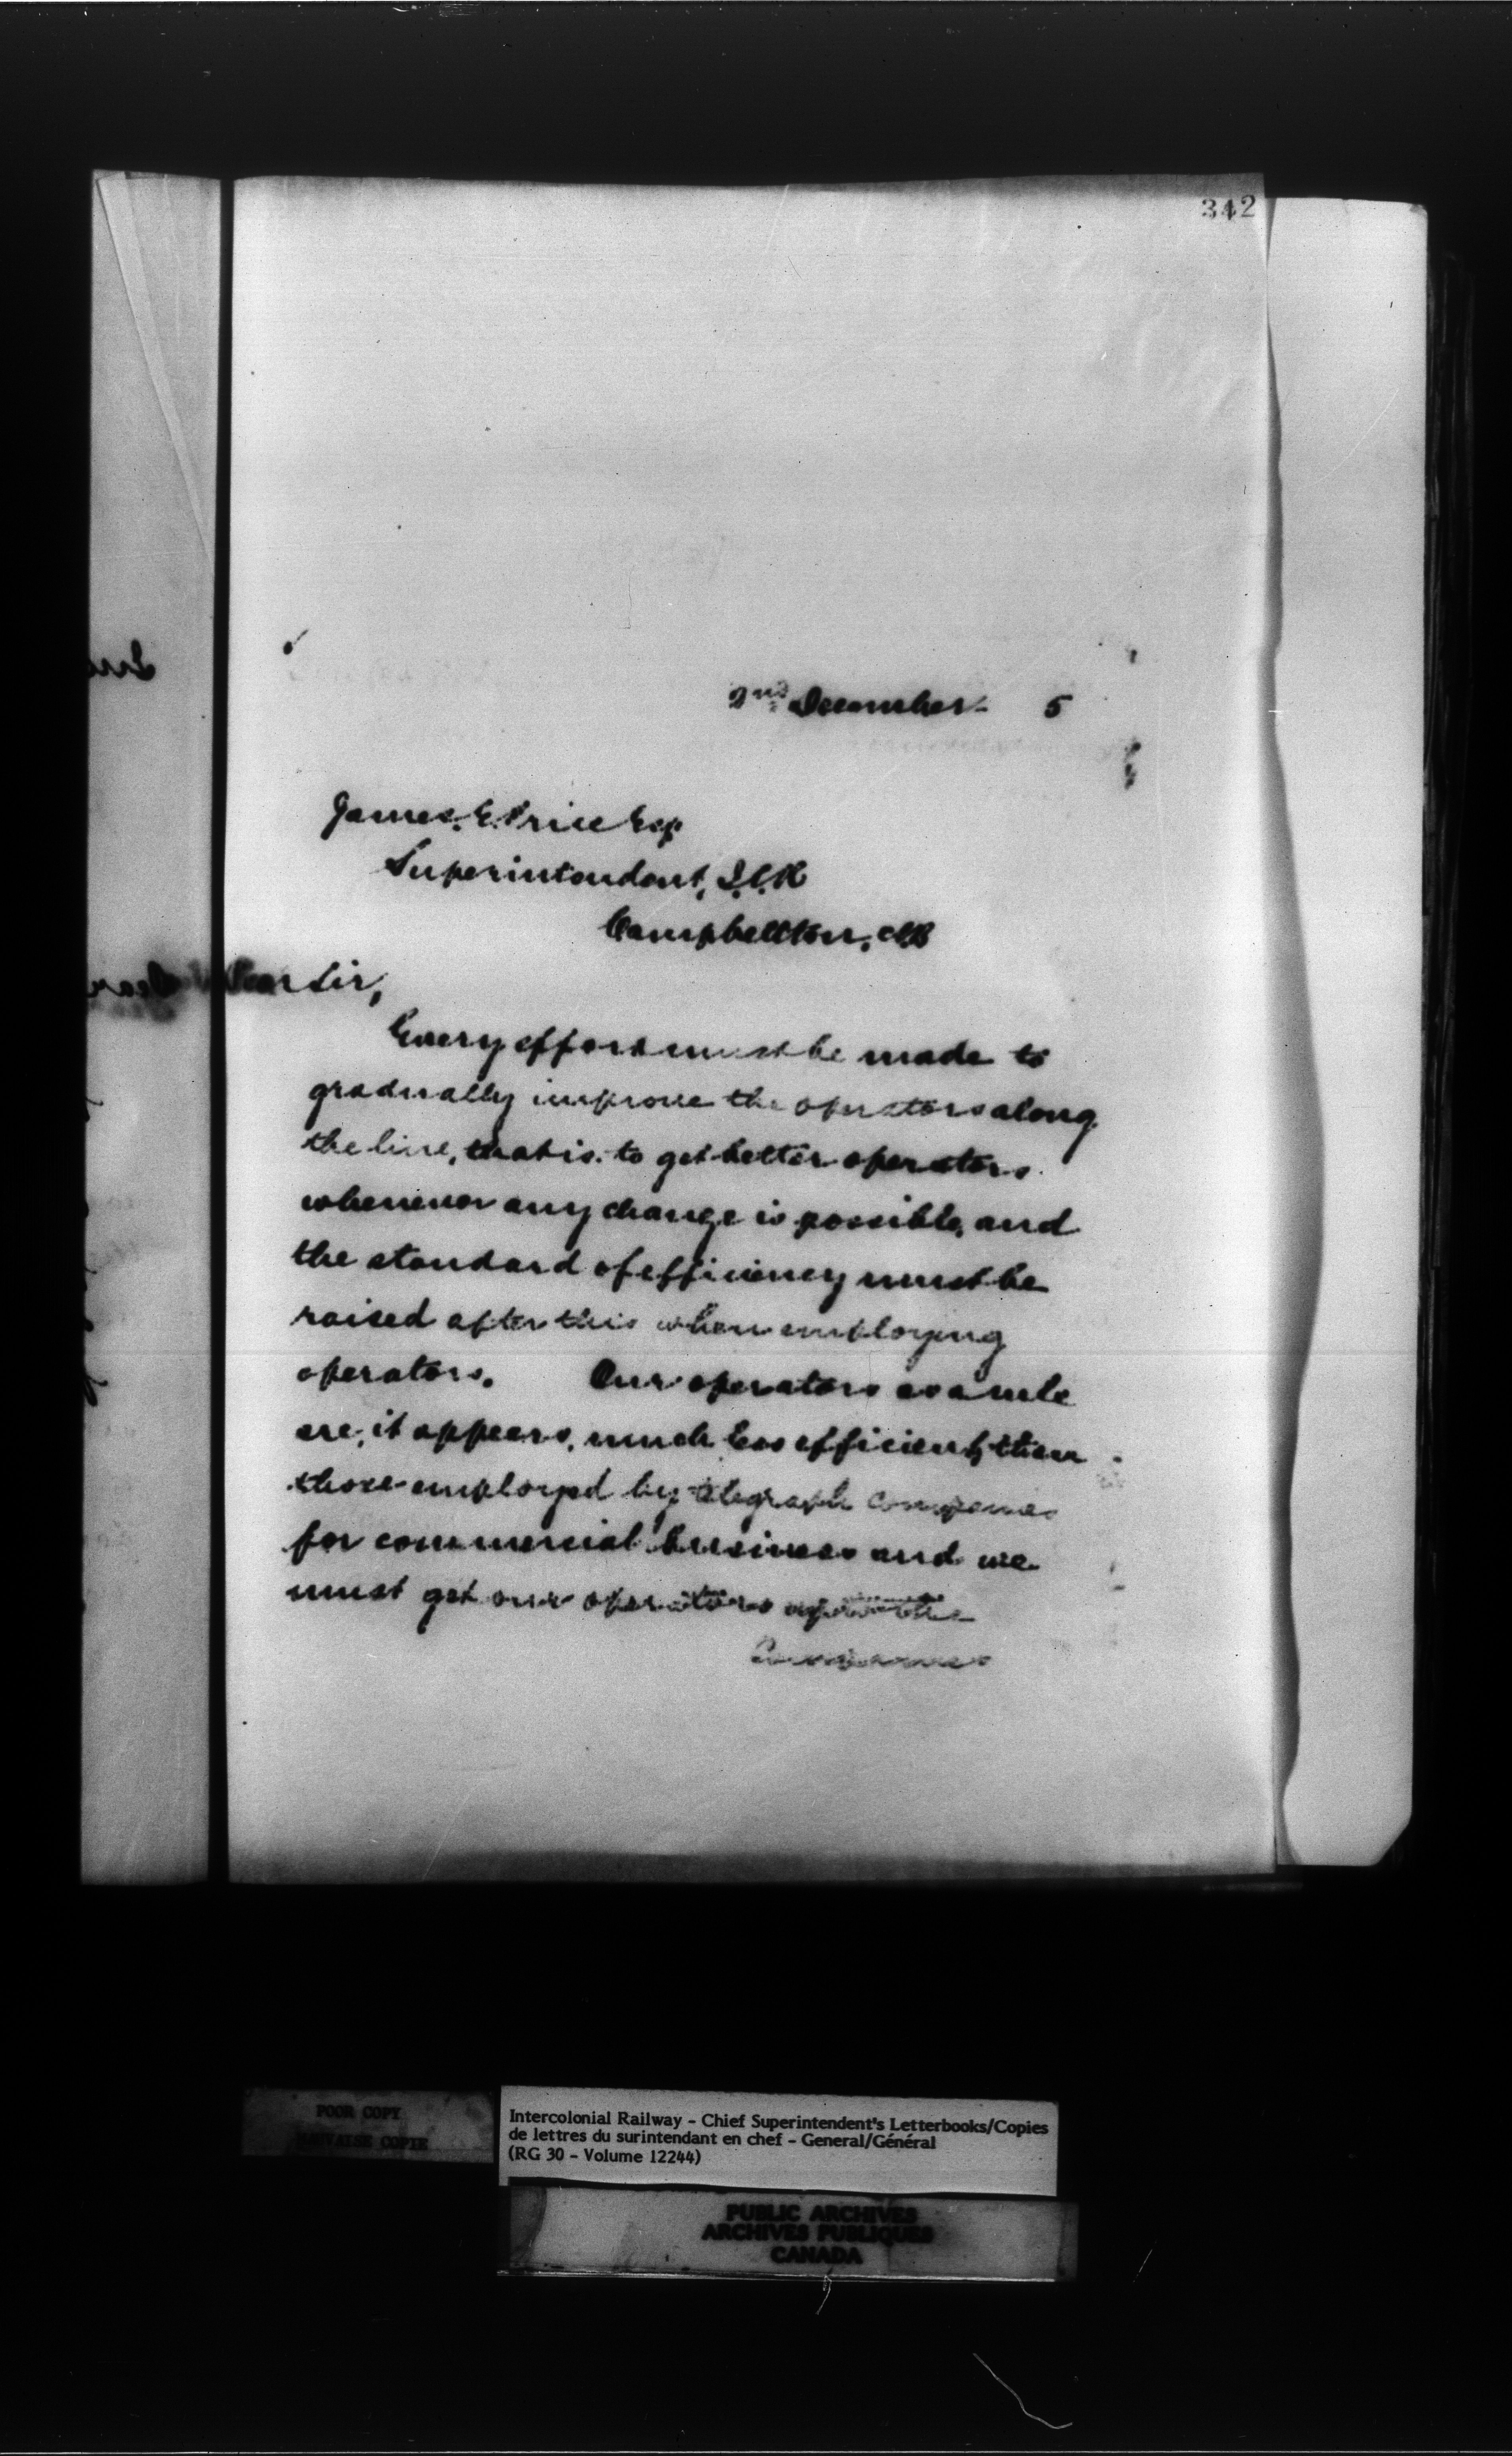 342
2nd December 5
James. E. Price Esq
Superintendent, I.C.R
Campbellton, NB
Dear Sir,
Every effort must be made to
gradually improve the operators along
the line, that is to get better operators
whenever any change is possible, and
the standard of efficiency must be
raised after this when employing
operators. Our operators as a rule
are, it appears, much less efficient than
those employed by telegraph companies
for commercial business and we
must get our operators up to the
Companies
POOR COPY
MAUVAISE COPIE
Intercolonial Railway - Chief Superintendent's Letterbooks/Copies
de lettres du surintendant en chef - General/Général
(RG 30 - Volume 12244)
PUBLIC ARCHIVES
ARCHIVES PUBLIQUES
CANADA